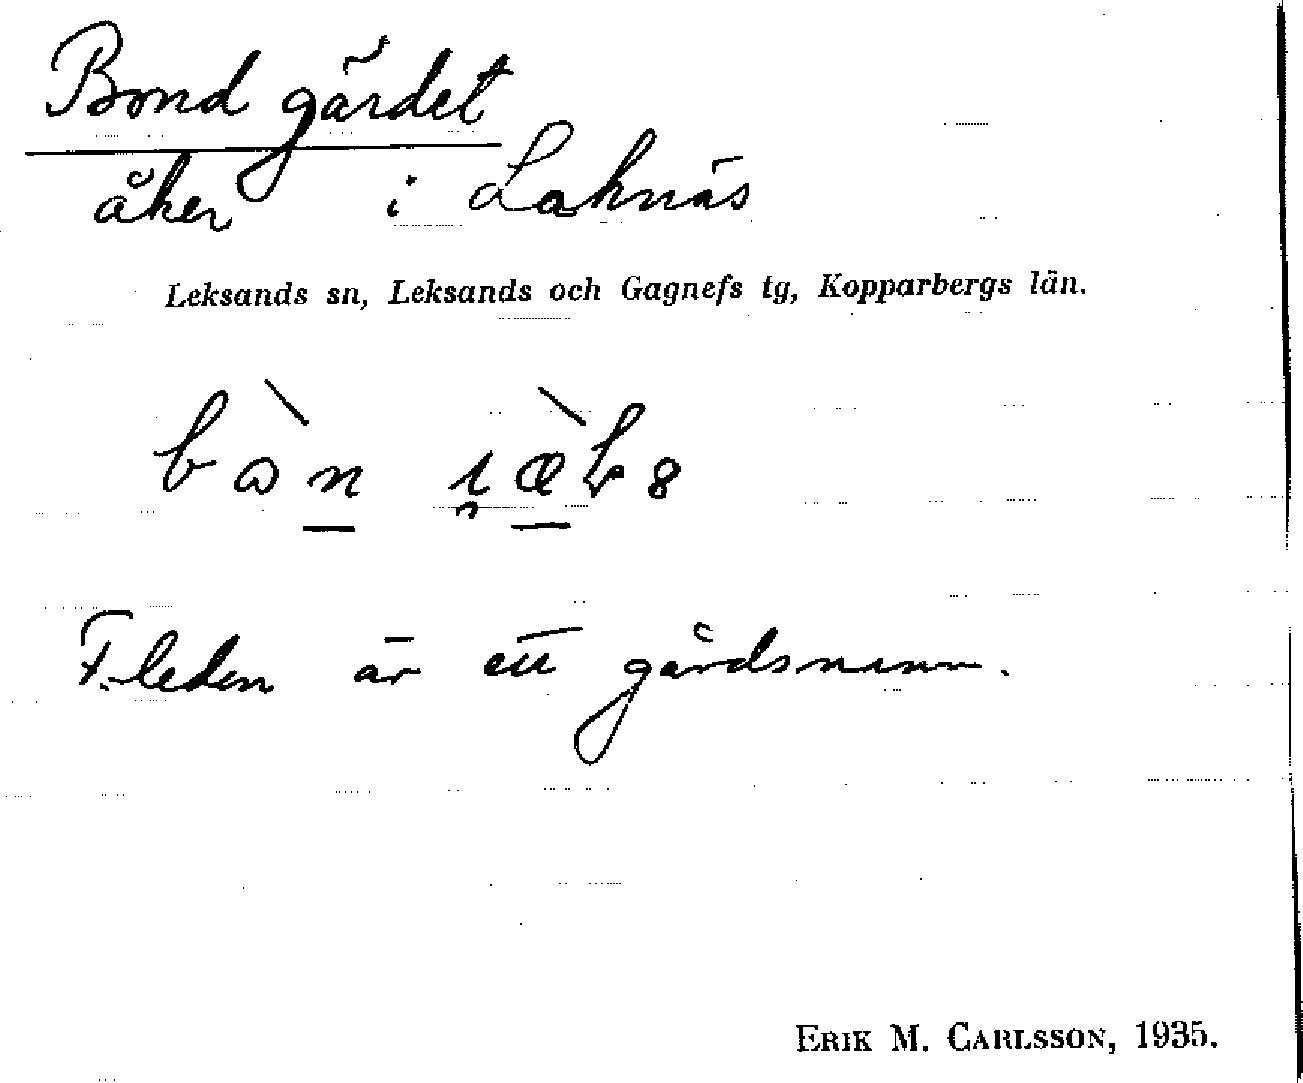 Bondgärdet
åker i Laknäs
Leksands sn, Leksands och Gagnefs tg, Kopparbergs län.
F. leden är ett gårdsnamn.
ERIK M. CARLSSON, 1935.